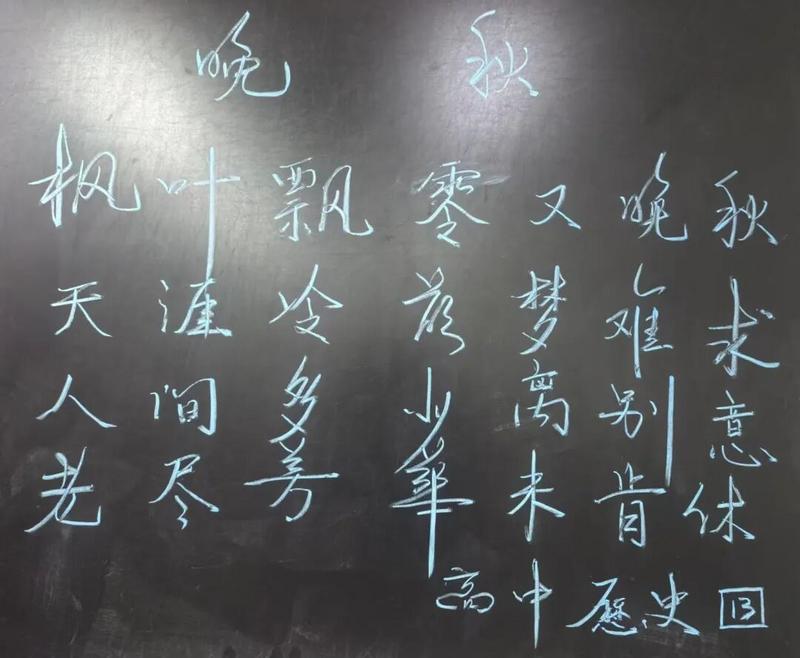 晚秋
枫叶飘零又晚秋
天涯冷落梦难求
人间多少离别意
老尽芳華未肯休
高中歷史 13